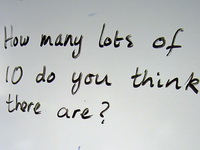 How many lots of
10 do you think
there are?